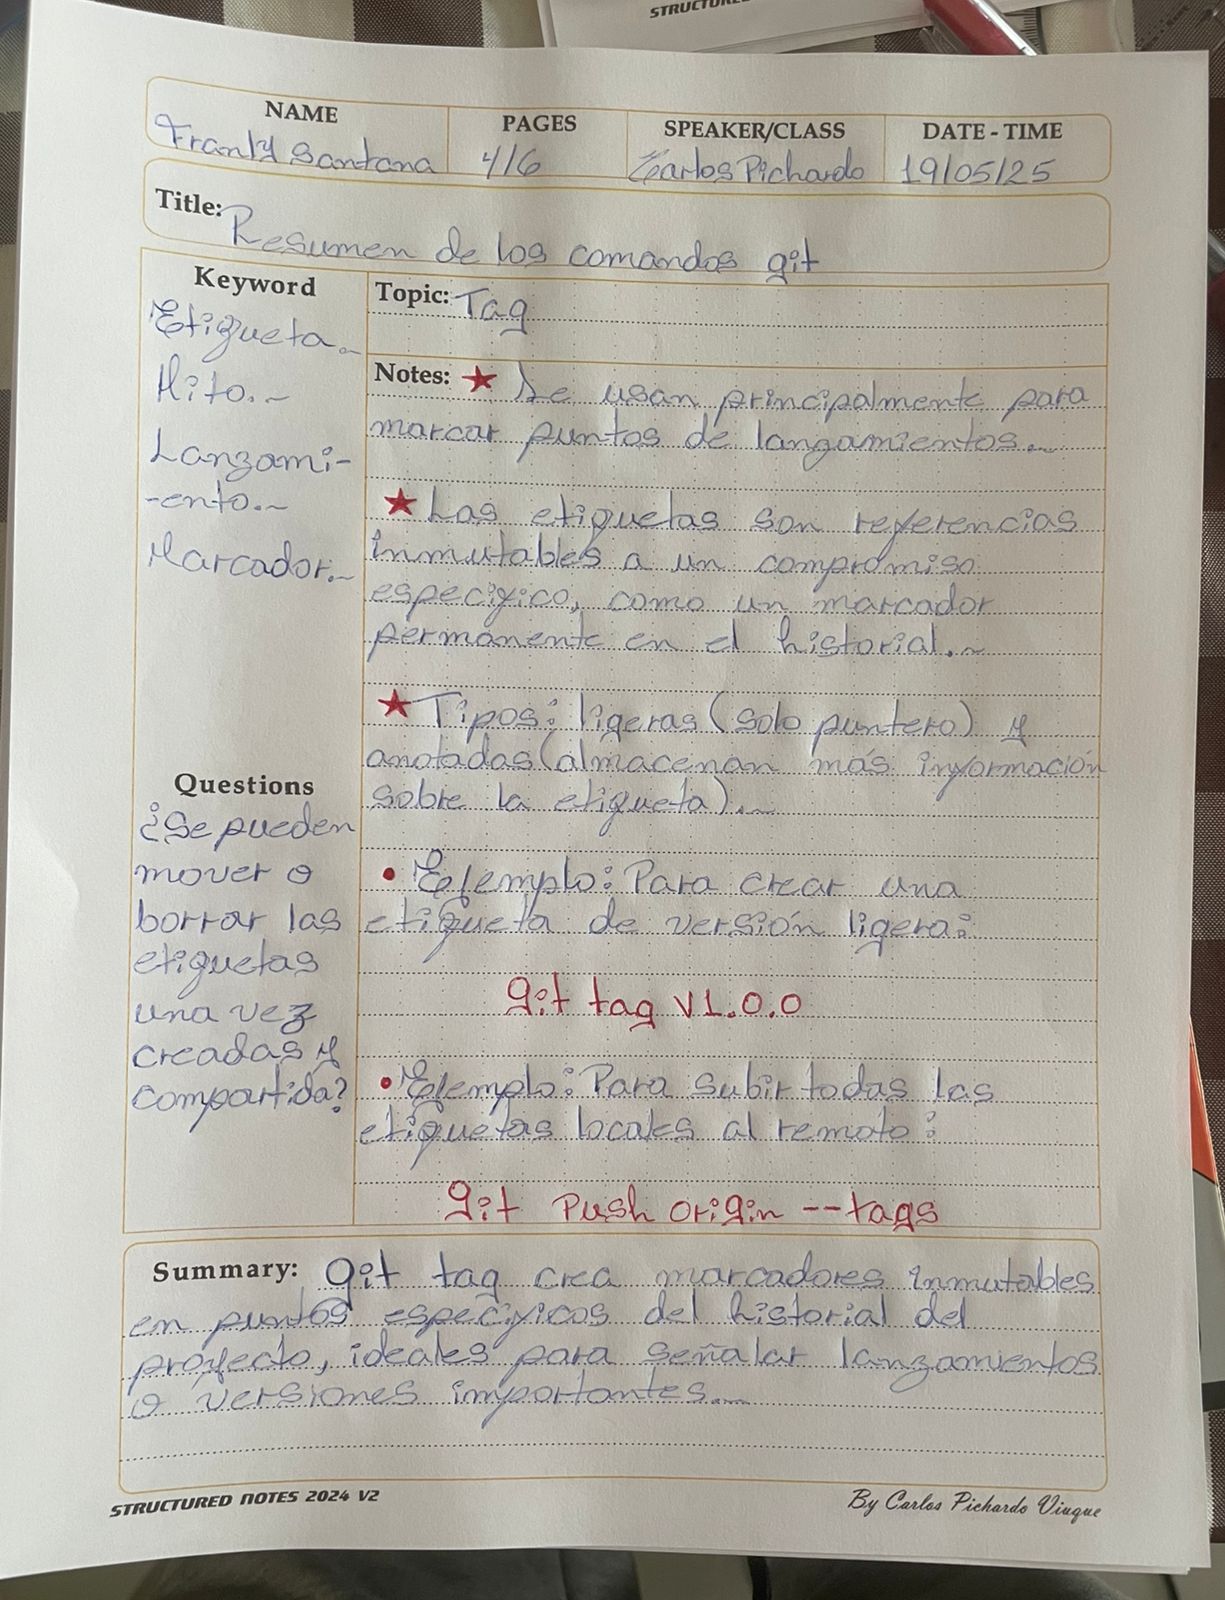 STRUCTURED
NAME
Franly Santana
PAGES
4/6
SPEAKER/CLASS
Carlos Pichardo
DATE - TIME
19/05/25
Title: Resumen de los comandos git
Keyword
Etiqueta.
Hito.
Lanzami-
-ento.
Marcador.
Questions
¿Se pueden
mover o
borrar las
etiquetas
una vez
creadas y
compartida?
Topic: Tag
Notes: ★ Se usan principalmente para
marcar puntos de lanzamientos.
★ Las etiquetas son referencias
inmutables a un compromiso
específico, como un marcador
permanente en el historial.
★ Tipos: ligeras (solo puntero) y
anotadas (almacenan más información
sobre la etiqueta).
• Ejemplo: Para crear una
etiqueta de versión ligera:
git tag v1.0.0
• Ejemplo: Para subir todas las
etiquetas locales al remoto:
git Push origin --tags
Summary: git tag crea marcadores inmutables
en puntos específicos del historial del
proyecto, ideales para señalar lanzamientos
o versiones importantes.
STRUCTURED NOTES 2024 V2
By Carlos Pichardo Viuque